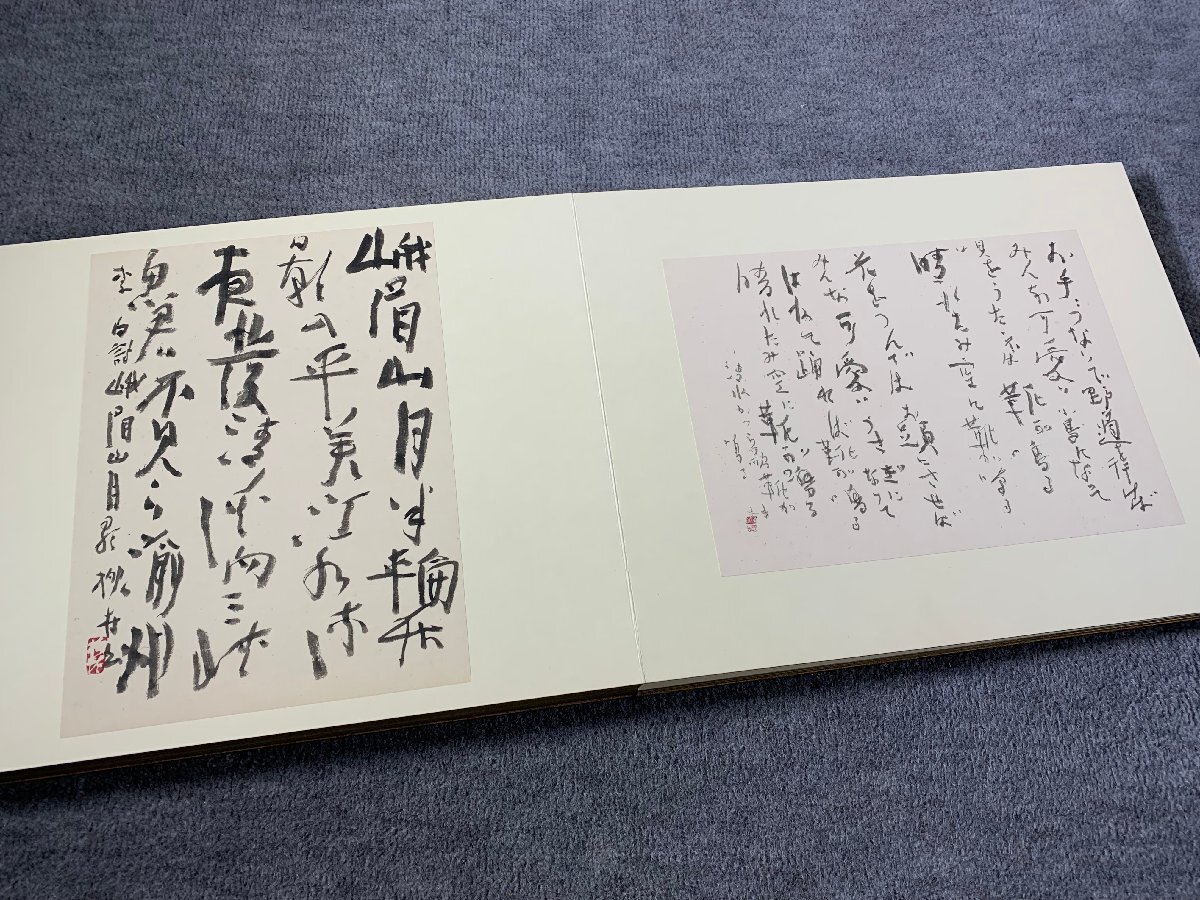 お手々つないで野道を行けば
みんな可愛い小鳥になって
唄をうたへば靴が鳴る
晴れたみ空に靴が鳴る
花をつんではお頭にさせば
みんな可愛いうさぎになって
はねて踊れば靴が鳴る
晴れたみ空に靴が鳴る
清水かつら
峨眉山月半輪秋
影入平羌江水流
夜發清溪向三峡
思君不見下渝州
李白詩峨眉山月歌